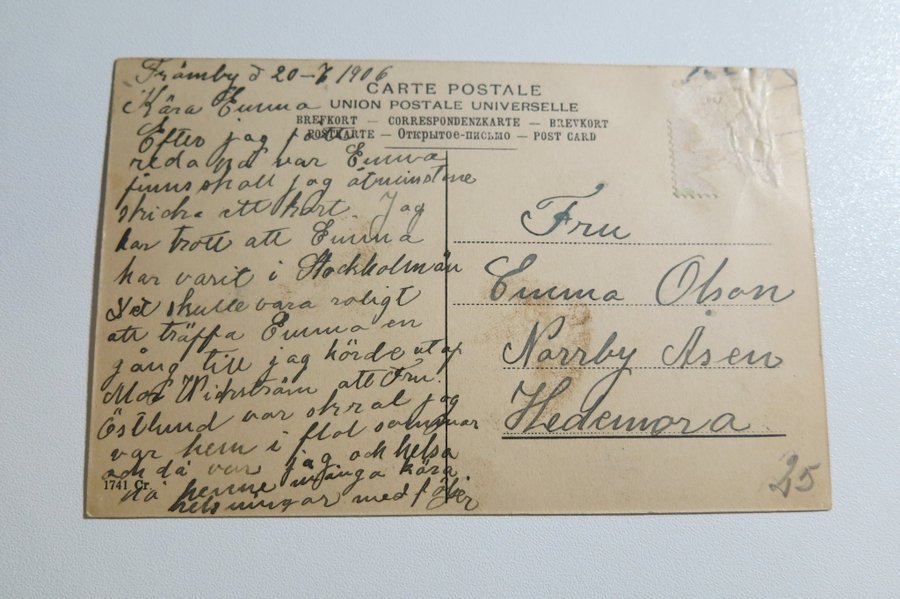 Främby d 20-7 1906
Kära Emma
Efter jag fått
reda på var Emma
finns skall jag åtminstone
skicka ett kort. Jag
har trott att Emma
har varit i Stockholm än
Det skulle vara roligt
att träffa Emma en
gång till jag hörde utaf
Mor Wickström att Fru.
Östlund var skral jag
var hem i fjol sommar
och då var jag och helsa
på henne många kära
helsningar med
CARTE POSTALE
UNION POSTALE UNIVERSELLE
BREFKORT — CORRESPONDENZKARTE — BREVKORT
POSTKARTE — Открытое-письмо — POST CARD
Fru
Emma Olson
Norrby Åsen
Hedemora.
1741 Cr.
25